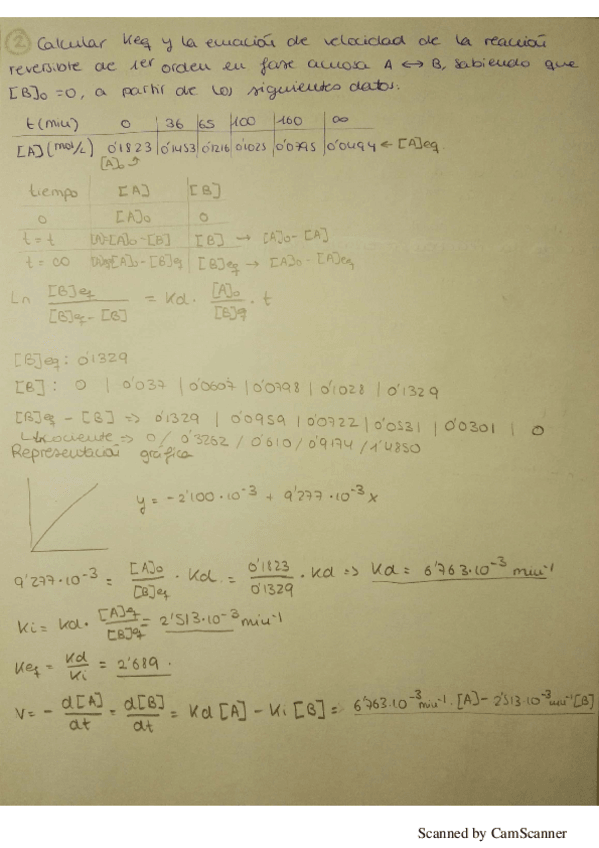 2 Calcular Keq y la ecuación de velocidad de la reacción
reversible de 1er orden en fase acuosa A ↔ B, sabiendo que
[B]₀ = 0, a partir de los siguientes datos:
t(min) 0 | 36 | 65 | 100 | 160 | ∞
[A](mol/L) 0'1823 | 0'1453 | 0'1216 | 0'1025 | 0'0795 | 0'0494 ← [A]eq
[A]₀
tiempo [A] [B]
0 [A]₀ 0
t = t [A]=[A]₀-[B] [B] → [A]₀-[A]
t = ∞ [A]eq=[A]₀-[B]eq [B]eq → [A]₀-[A]eq
Ln [B]eq / [B]eq-[B] = Kd · [A]₀ / [B]eq · t
[B]eq: 0'1329
[B]: 0 | 0'037 | 0'0607 | 0'0798 | 0'1028 | 0'1329
[B]eq - [B] => 0'1329 | 0'0959 | 0'0722 | 0'0531 | 0'0301 | 0
Ln cociente => 0 / 0'3262 / 0'610 / 0'9174 / 1'4850
Representación gráfica
y = -2'100·10⁻³ + 9'277·10⁻³ x
9'277·10⁻³ = [A]₀ / [B]eq · Kd = 0'1823 / 0'1329 · Kd => Kd = 6'763·10⁻³ min⁻¹
Ki = Kd · [A]eq / [B]eq = 2'513·10⁻³ min⁻¹
Keq = Kd / Ki = 2'689.
V = - d[A] / dt = d[B] / dt = Kd [A] - Ki [B] = 6'763·10⁻³ min⁻¹·[A] - 2'513·10⁻³ min⁻¹ [B]
Scanned by CamScanner